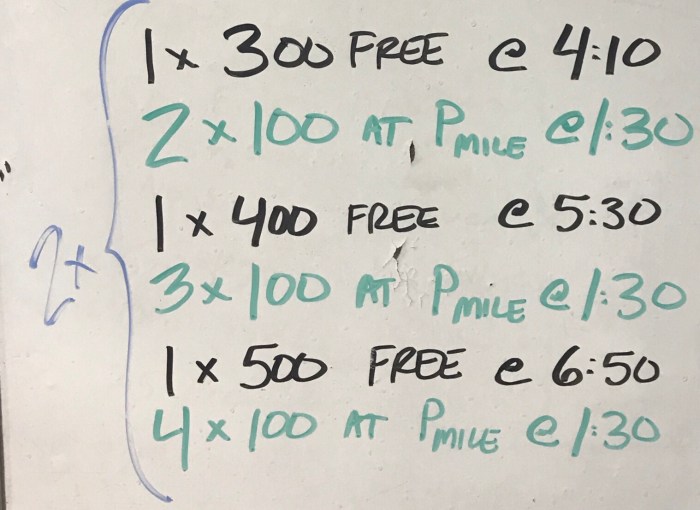 1 x 300 FREE @ 4:10
2 x 100 AT PMILE @ 1:30
2x
1 x 400 FREE @ 5:30
3 x 100 AT PMILE @ 1:30
1 x 500 FREE @ 6:50
4 x 100 AT PMILE @ 1:30